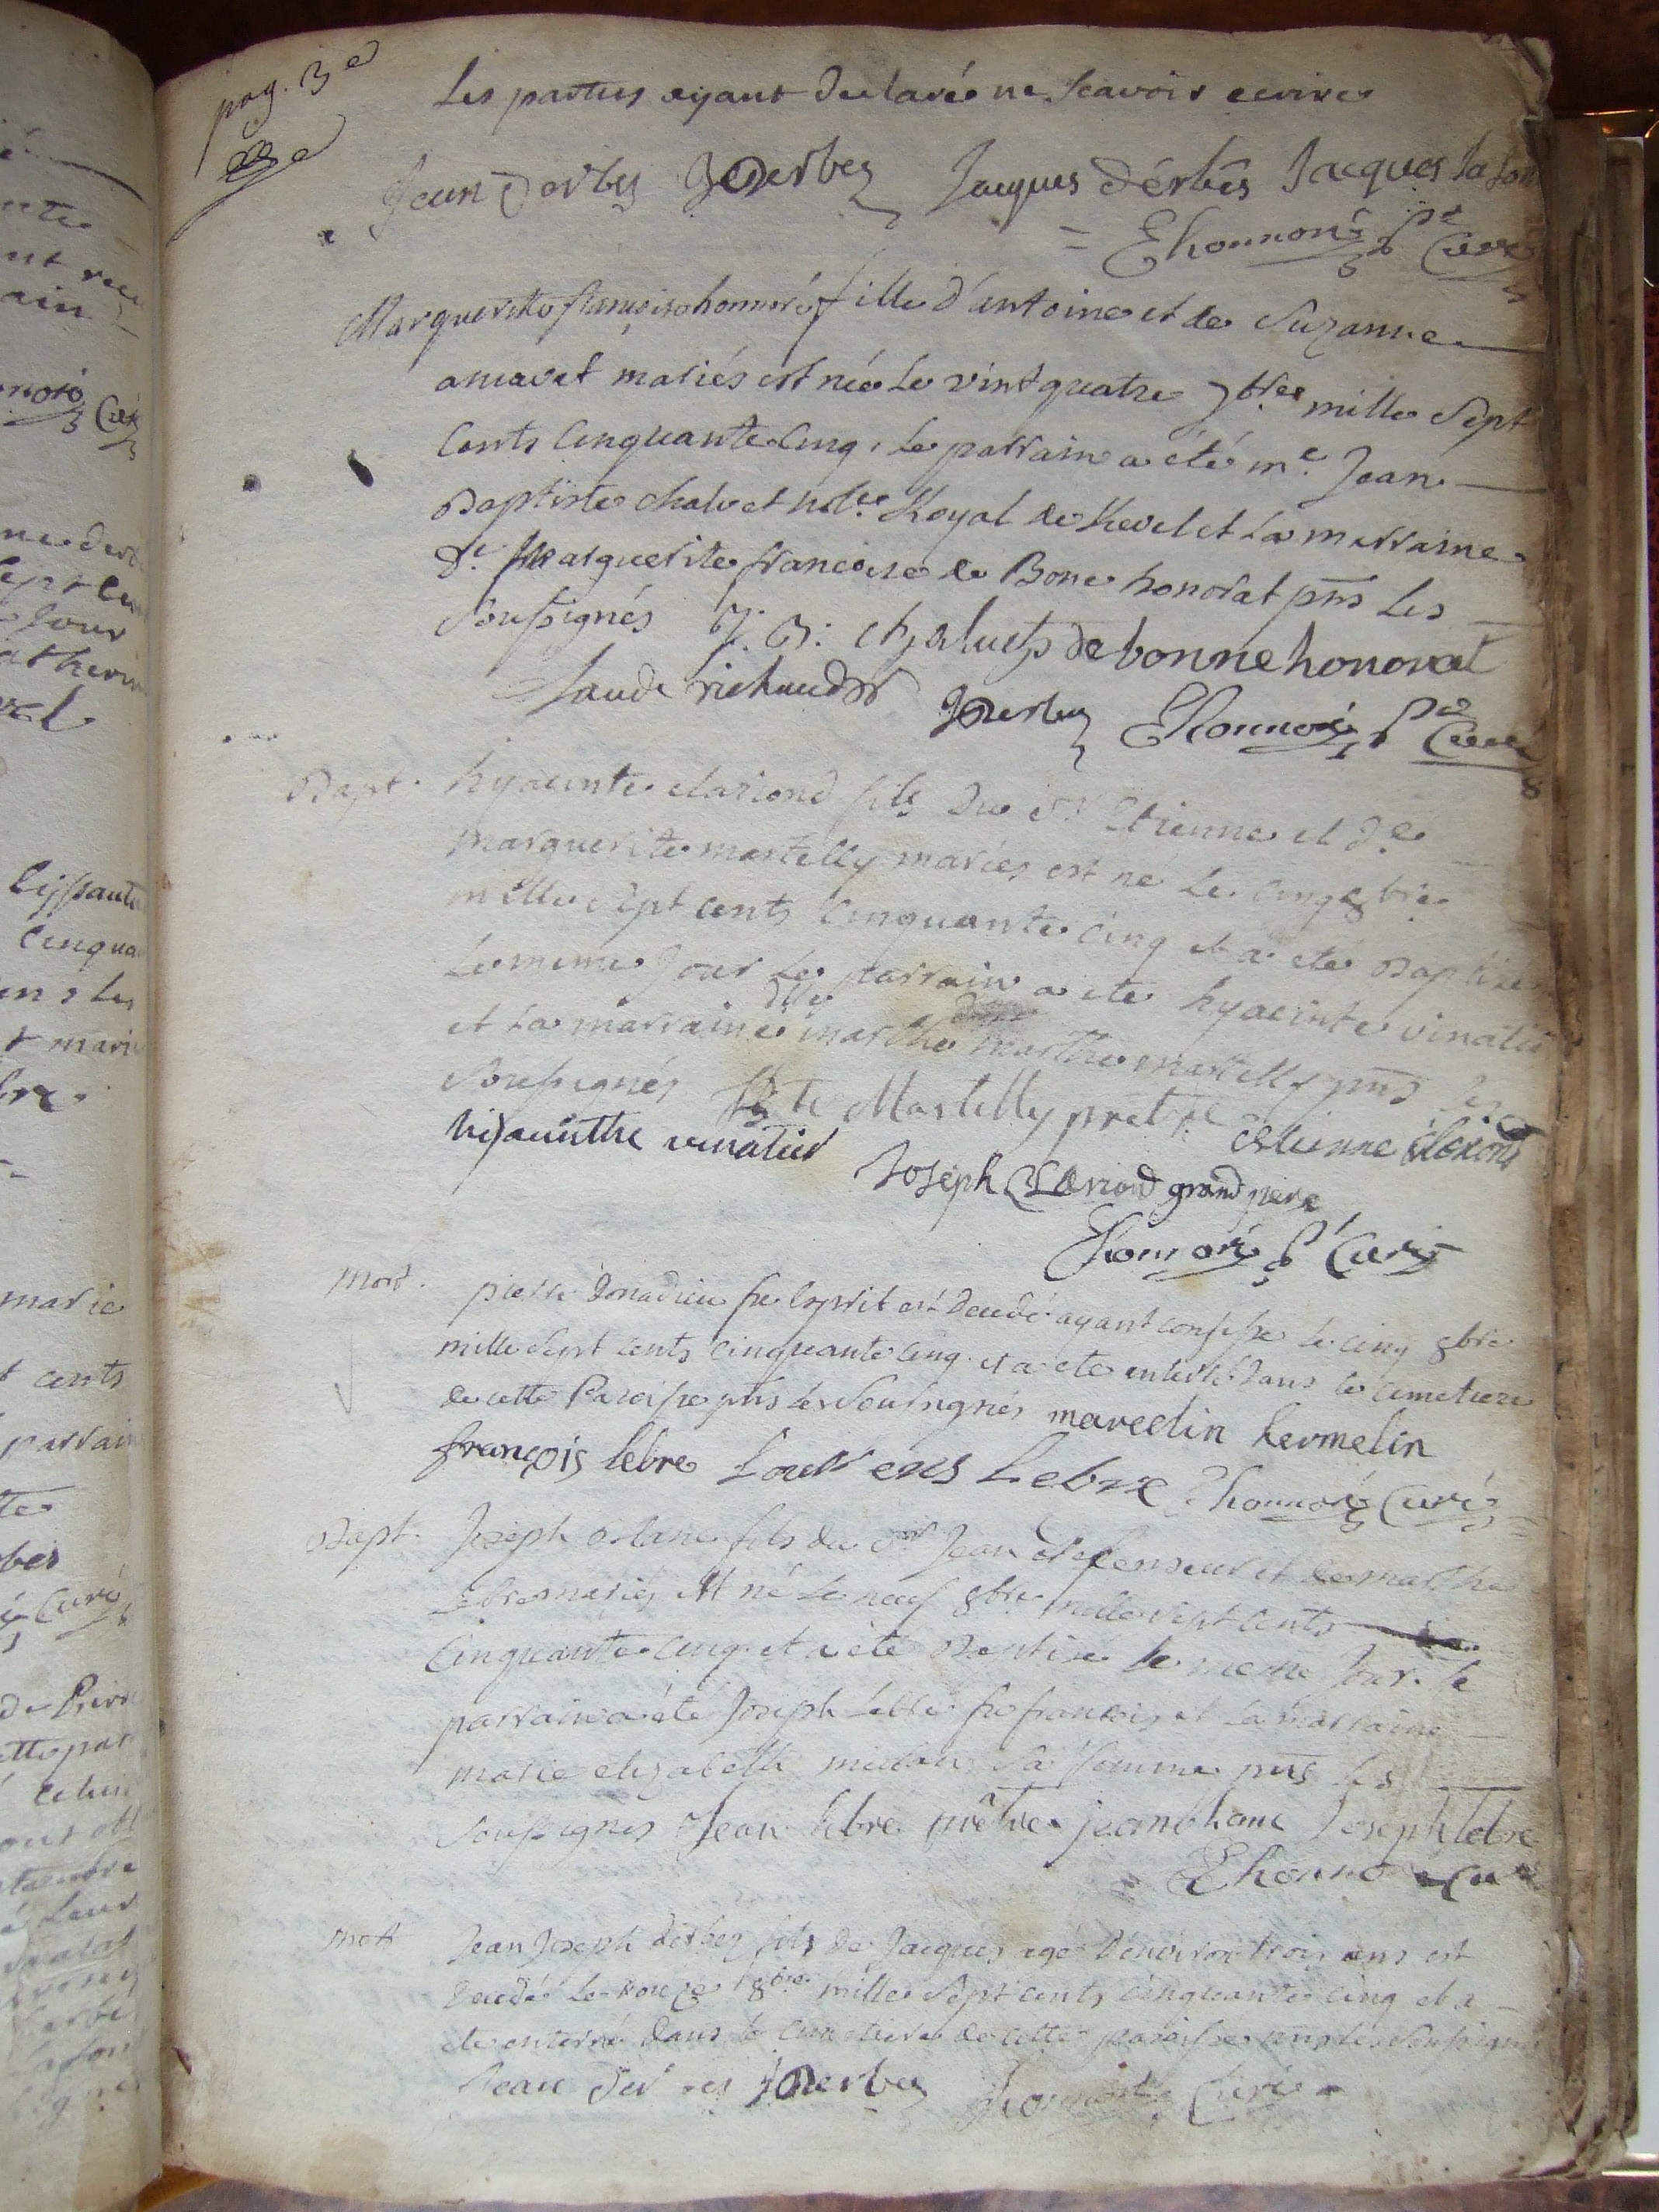 pag. 3e
Les parties ayant declaré ne scavoir ecrire
Jean Derbes JDerbez Jacques dérbes Jacques Lafon
= Ehonnoré pr Curé
Marguerite françoise honnoré fille d'antoine et de Suzanne
amavet mariés est née le vintquatre 7bre mille sept
cents cinquante cinq, le parrain a été me. Jean
Baptiste chalvet not.re Royal de Revel et la marraine
d.e Marguerite francoise de Bone honorat pns les
soussignés J: B: chalvet de bonne honorat
Laude richaud JDerbez Ehonnoré pr Curé
Bapt. hyacinte clariond fils du sr. Etienne et d.e
marguerite martelly mariés est né le cinq 8bre
mille sept cents cinquante cinq et a eté Baptisé
le meme jour le parrain a ete hyacinte vinatier
et la marraine dlle marthe marthe martelly pns les
soussignés Martelly pretre estienne clariond
hijacinthe vinatier Joseph Clariond grand pere
Ehonnoré pr Curé
mort. pierre Donadieu feu Esprit est decedé ayant confessé le cinq 8bre
mille sept cents cinquante cinq et a ete enterré dans le cimetiere
de cette Paroisse pns les soussignés marcelin hermelin
françois lebre Lourens Lebre Ehonnoré Curé
Bapt. Joseph fils du sr Jean et de marthe
Lebre mariés est né le neuf 8bre mille sept cents
cinquante cinq et a eté Baptisé le meme jour le
parrain a été Joseph Lebre feu francois et la marraine
marie elizabeth sa femme pns les
soussignes Jean lebre prêtre Joseph lebre
Ehonnoré Curé
mort Jean Joseph derbez fils de Jacques agé denviron trois ans est
decedé le 8bre mille sept cents cinquante cinq et a
ete enterré dans le cimetiere de cette paroisse pns les soussignés
Jean Derbes JDerbez honnoré Curé